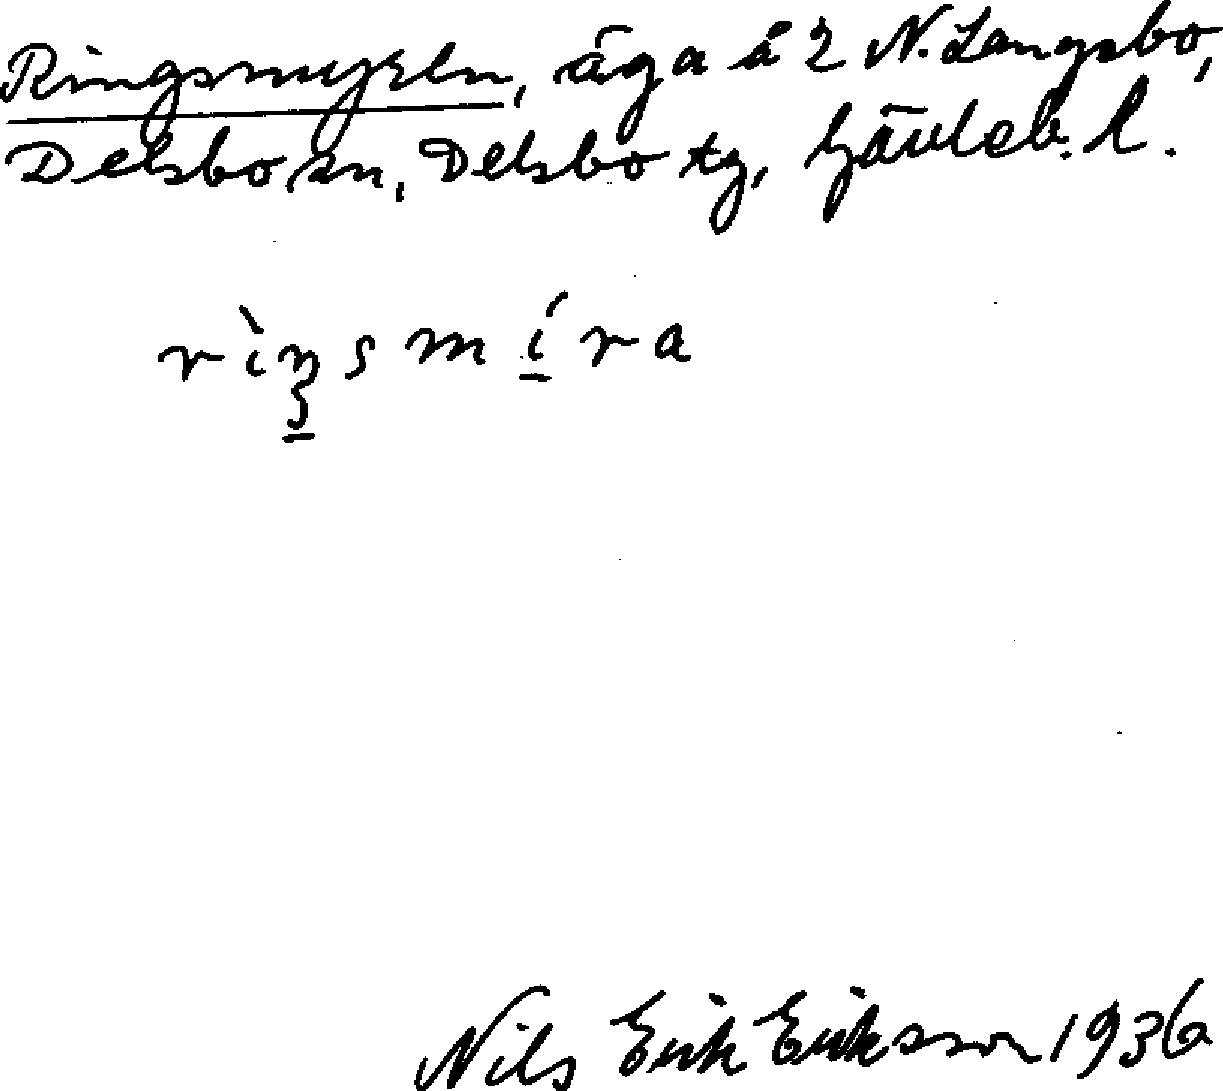 Ringsmyren, äga å 2 N. Långsbo,
Delsbo sn, Delsbo tg, Gävleb. l.
rìŋsmíra
Nils Erik Eriksson 1936